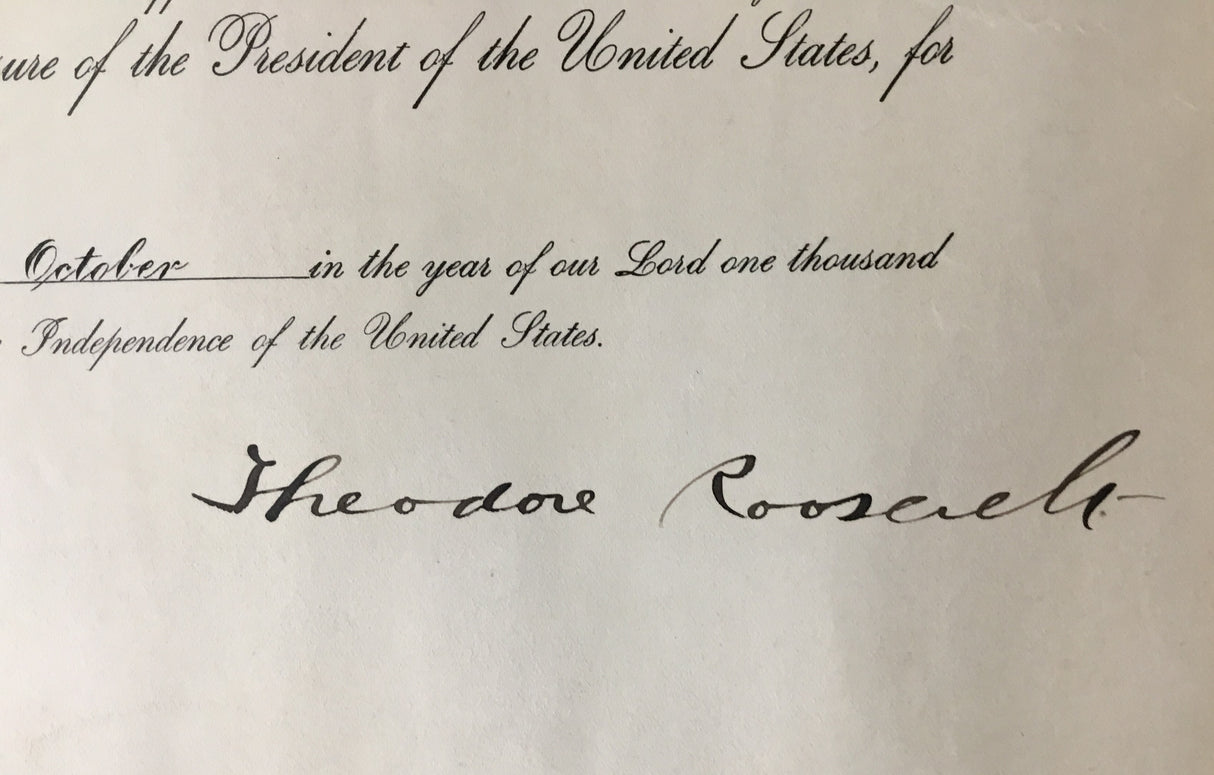 of the President of the United States, for
October in the year of our Lord one thousand
Independence of the United States.
Theodore Roosevelt